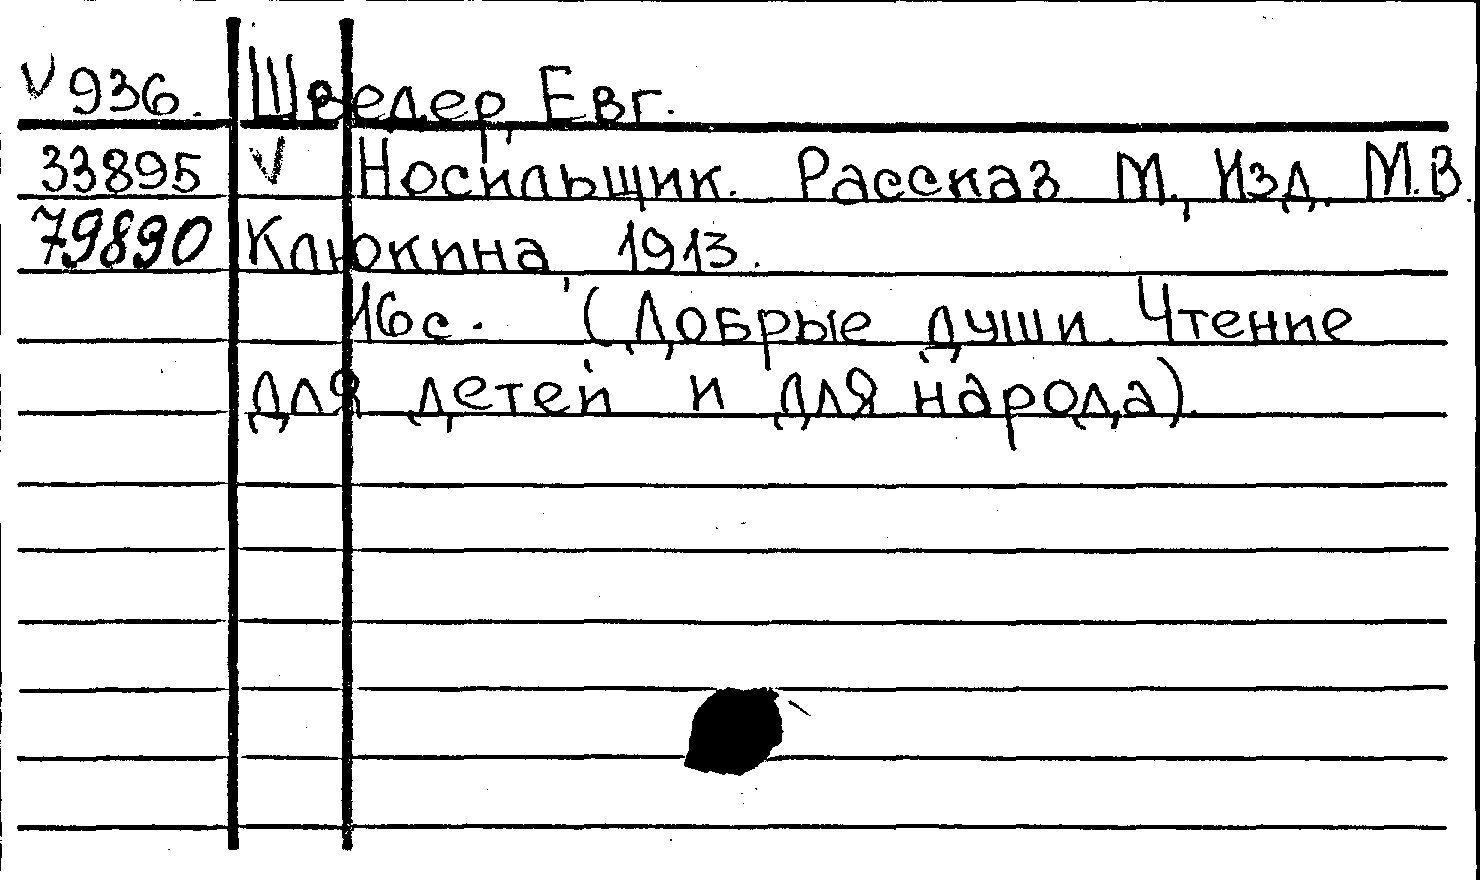 V 936. Шведер, Евг.
33895 V Носильщик. Рассказ М., Изд. М.В.
79890 Клюкина, 1913.
16с. (Добрые души. Чтение
для детей и для народа).